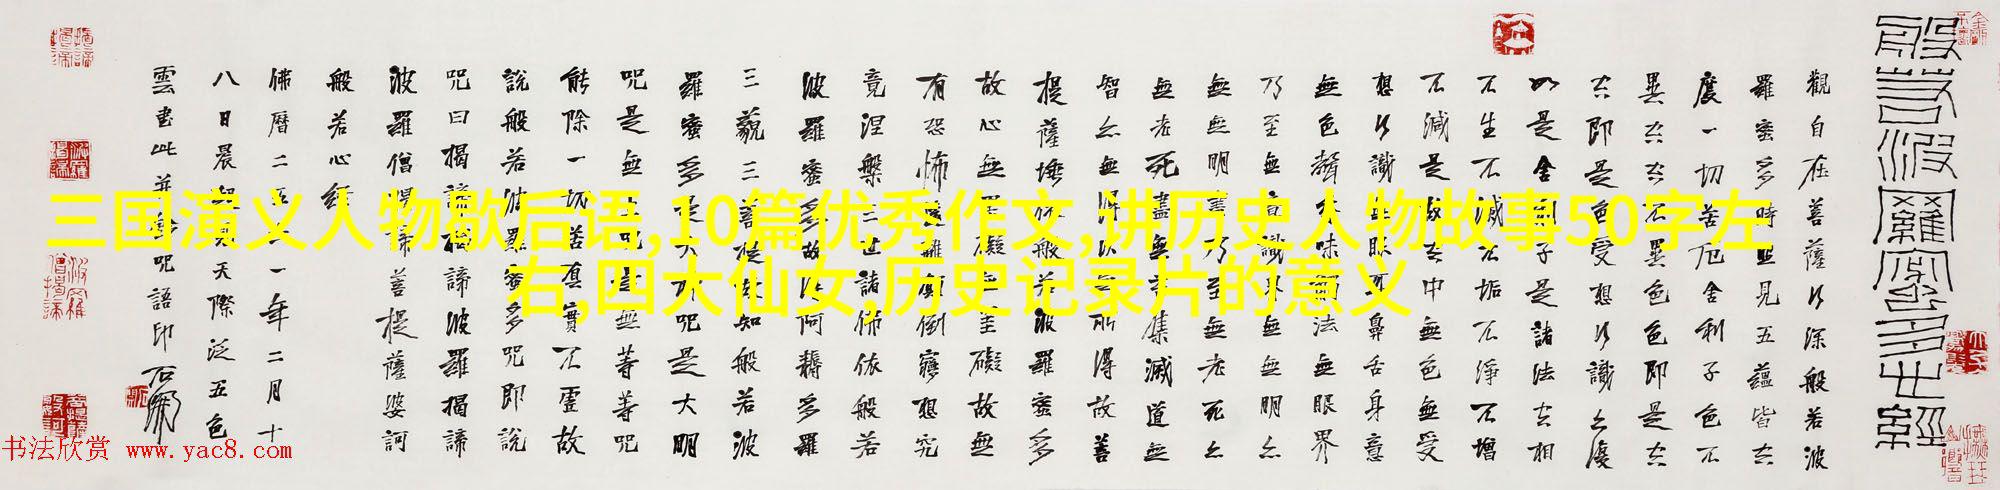 三国演义人物歇后语,10篇优秀作文,讲历史人物故事50字左
右,四大仙女,历史记录片的意义
般若波羅蜜多心經
觀自在菩薩行深般若波
羅蜜多時照見五蘊皆空
度一切苦厄舍利子色不
異空空不異色色即是空
空即是色受想行識亦復
如是舍利子是諸法空相
不生不滅不垢不淨不增
不減是故空中無色無受
想行識無眼耳鼻舌身意
無色聲香味觸法無眼界
乃至無意識界無無明亦
無無明盡乃至無老死亦
無老死盡無苦集滅道無
智亦無得以無所得故菩
提薩埵依般若波羅蜜多
故心無罣礙無罣礙故無
有恐怖遠離顛倒夢想究
竟涅槃三世諸佛依般若
波羅蜜多故得阿耨多羅
三藐三菩提故知般若波
羅蜜多是大神咒是大明
咒是無上咒是無等等咒
能除一切苦真實不虛故
說般若波羅蜜多咒即說
咒曰揭諦揭諦波羅揭諦
波羅僧揭諦菩提薩婆訶
般若心經
佛曆二五一年二月十
八日晨起天際泛五色
雲書此并咒語印
书法欣赏 www.yac8.com